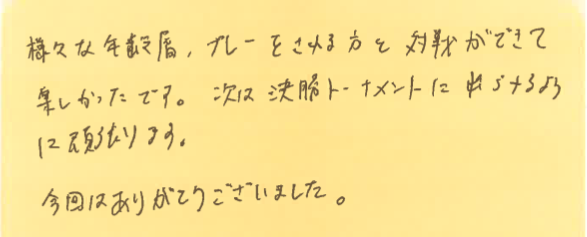 様々な年齢層、プレーをされる方と対戦ができて
楽しかったです。次は決勝トーナメントに出られるよう
に頑張ります。
今回はありがとうございました。